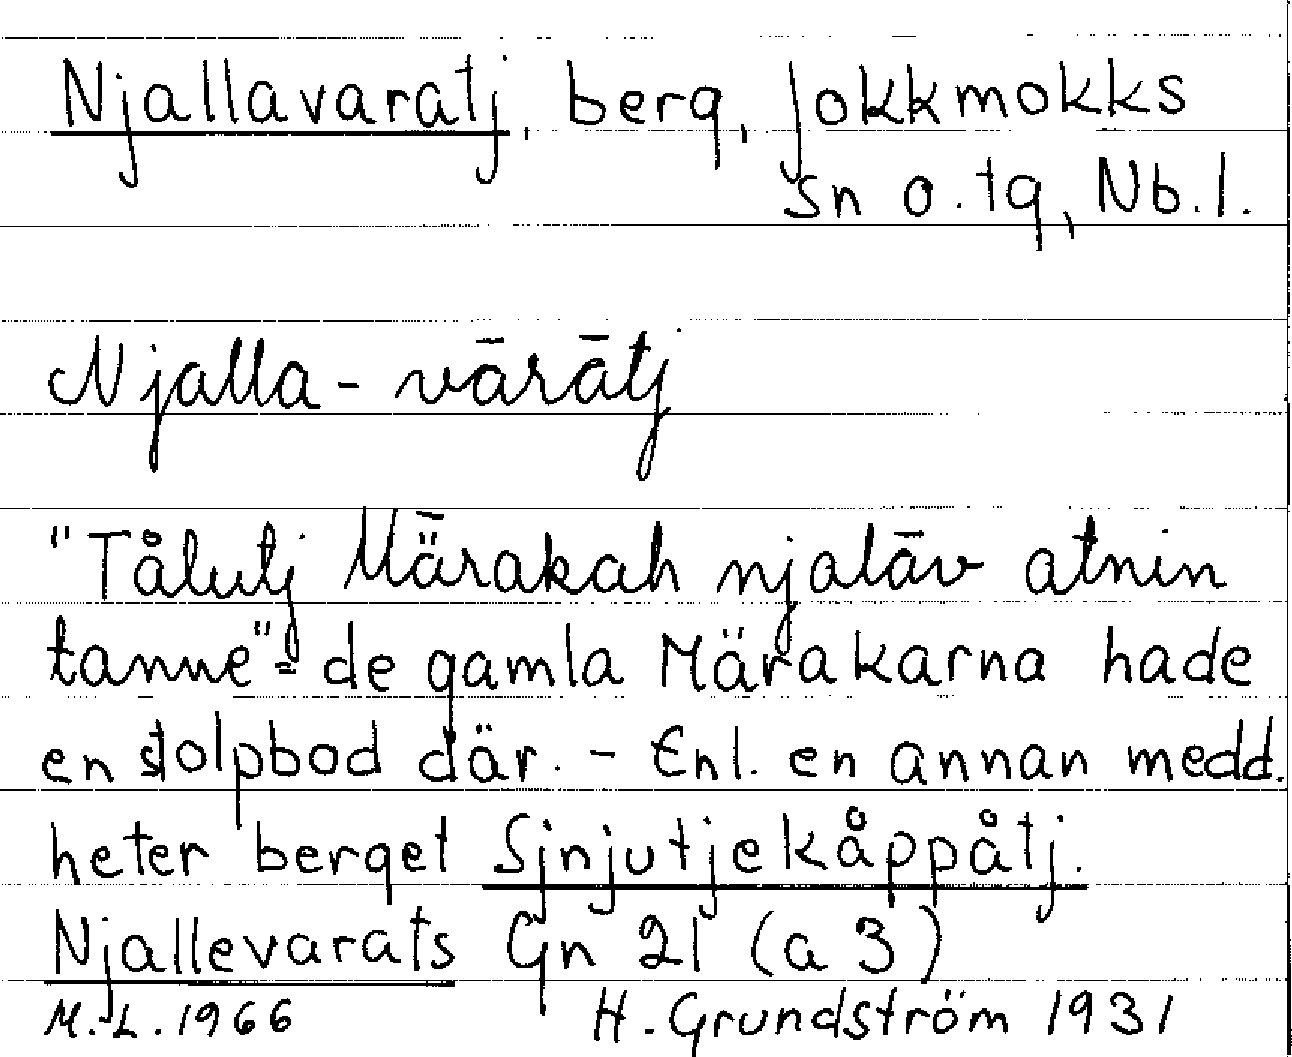 Njallavaratj, berg, Jokkmokks
sn o. tg, Nb. l.
Njalla - vārātj
"Tålutj Mǟrakah njalāv atnin
tanne" = de gamla Märakarna hade
en stolpbod där. - Enl. en annan medd.
heter berget Sjnjutjekåppåtj.
Njallevarats Gn 21 (a 3)
M. L. 1966 H. Grundström 1931